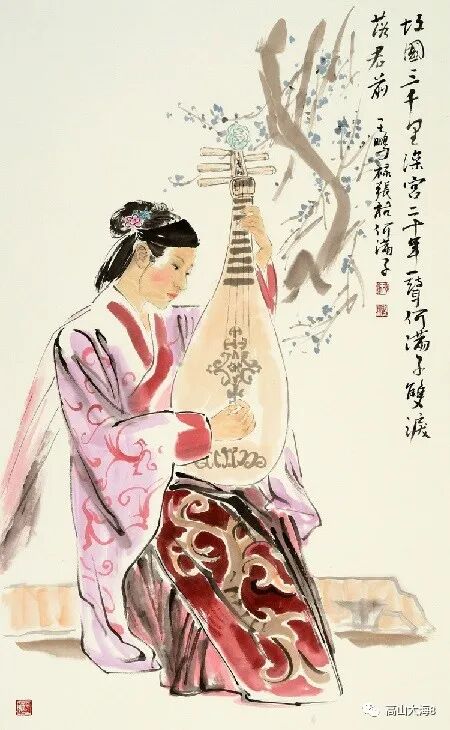 故國三千里深宮二十年一聲何滿子雙淚
落君前
張祜何滿子
高山大海8